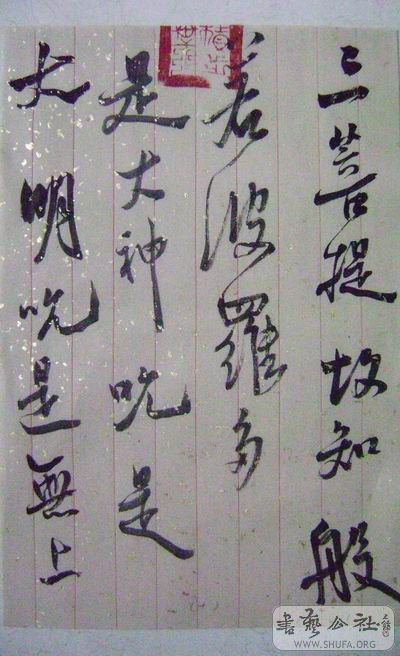 三菩提故知般
若波羅多
是大神呪是
大明呪是無上
書藝公社
WWW.SHUFA.ORG